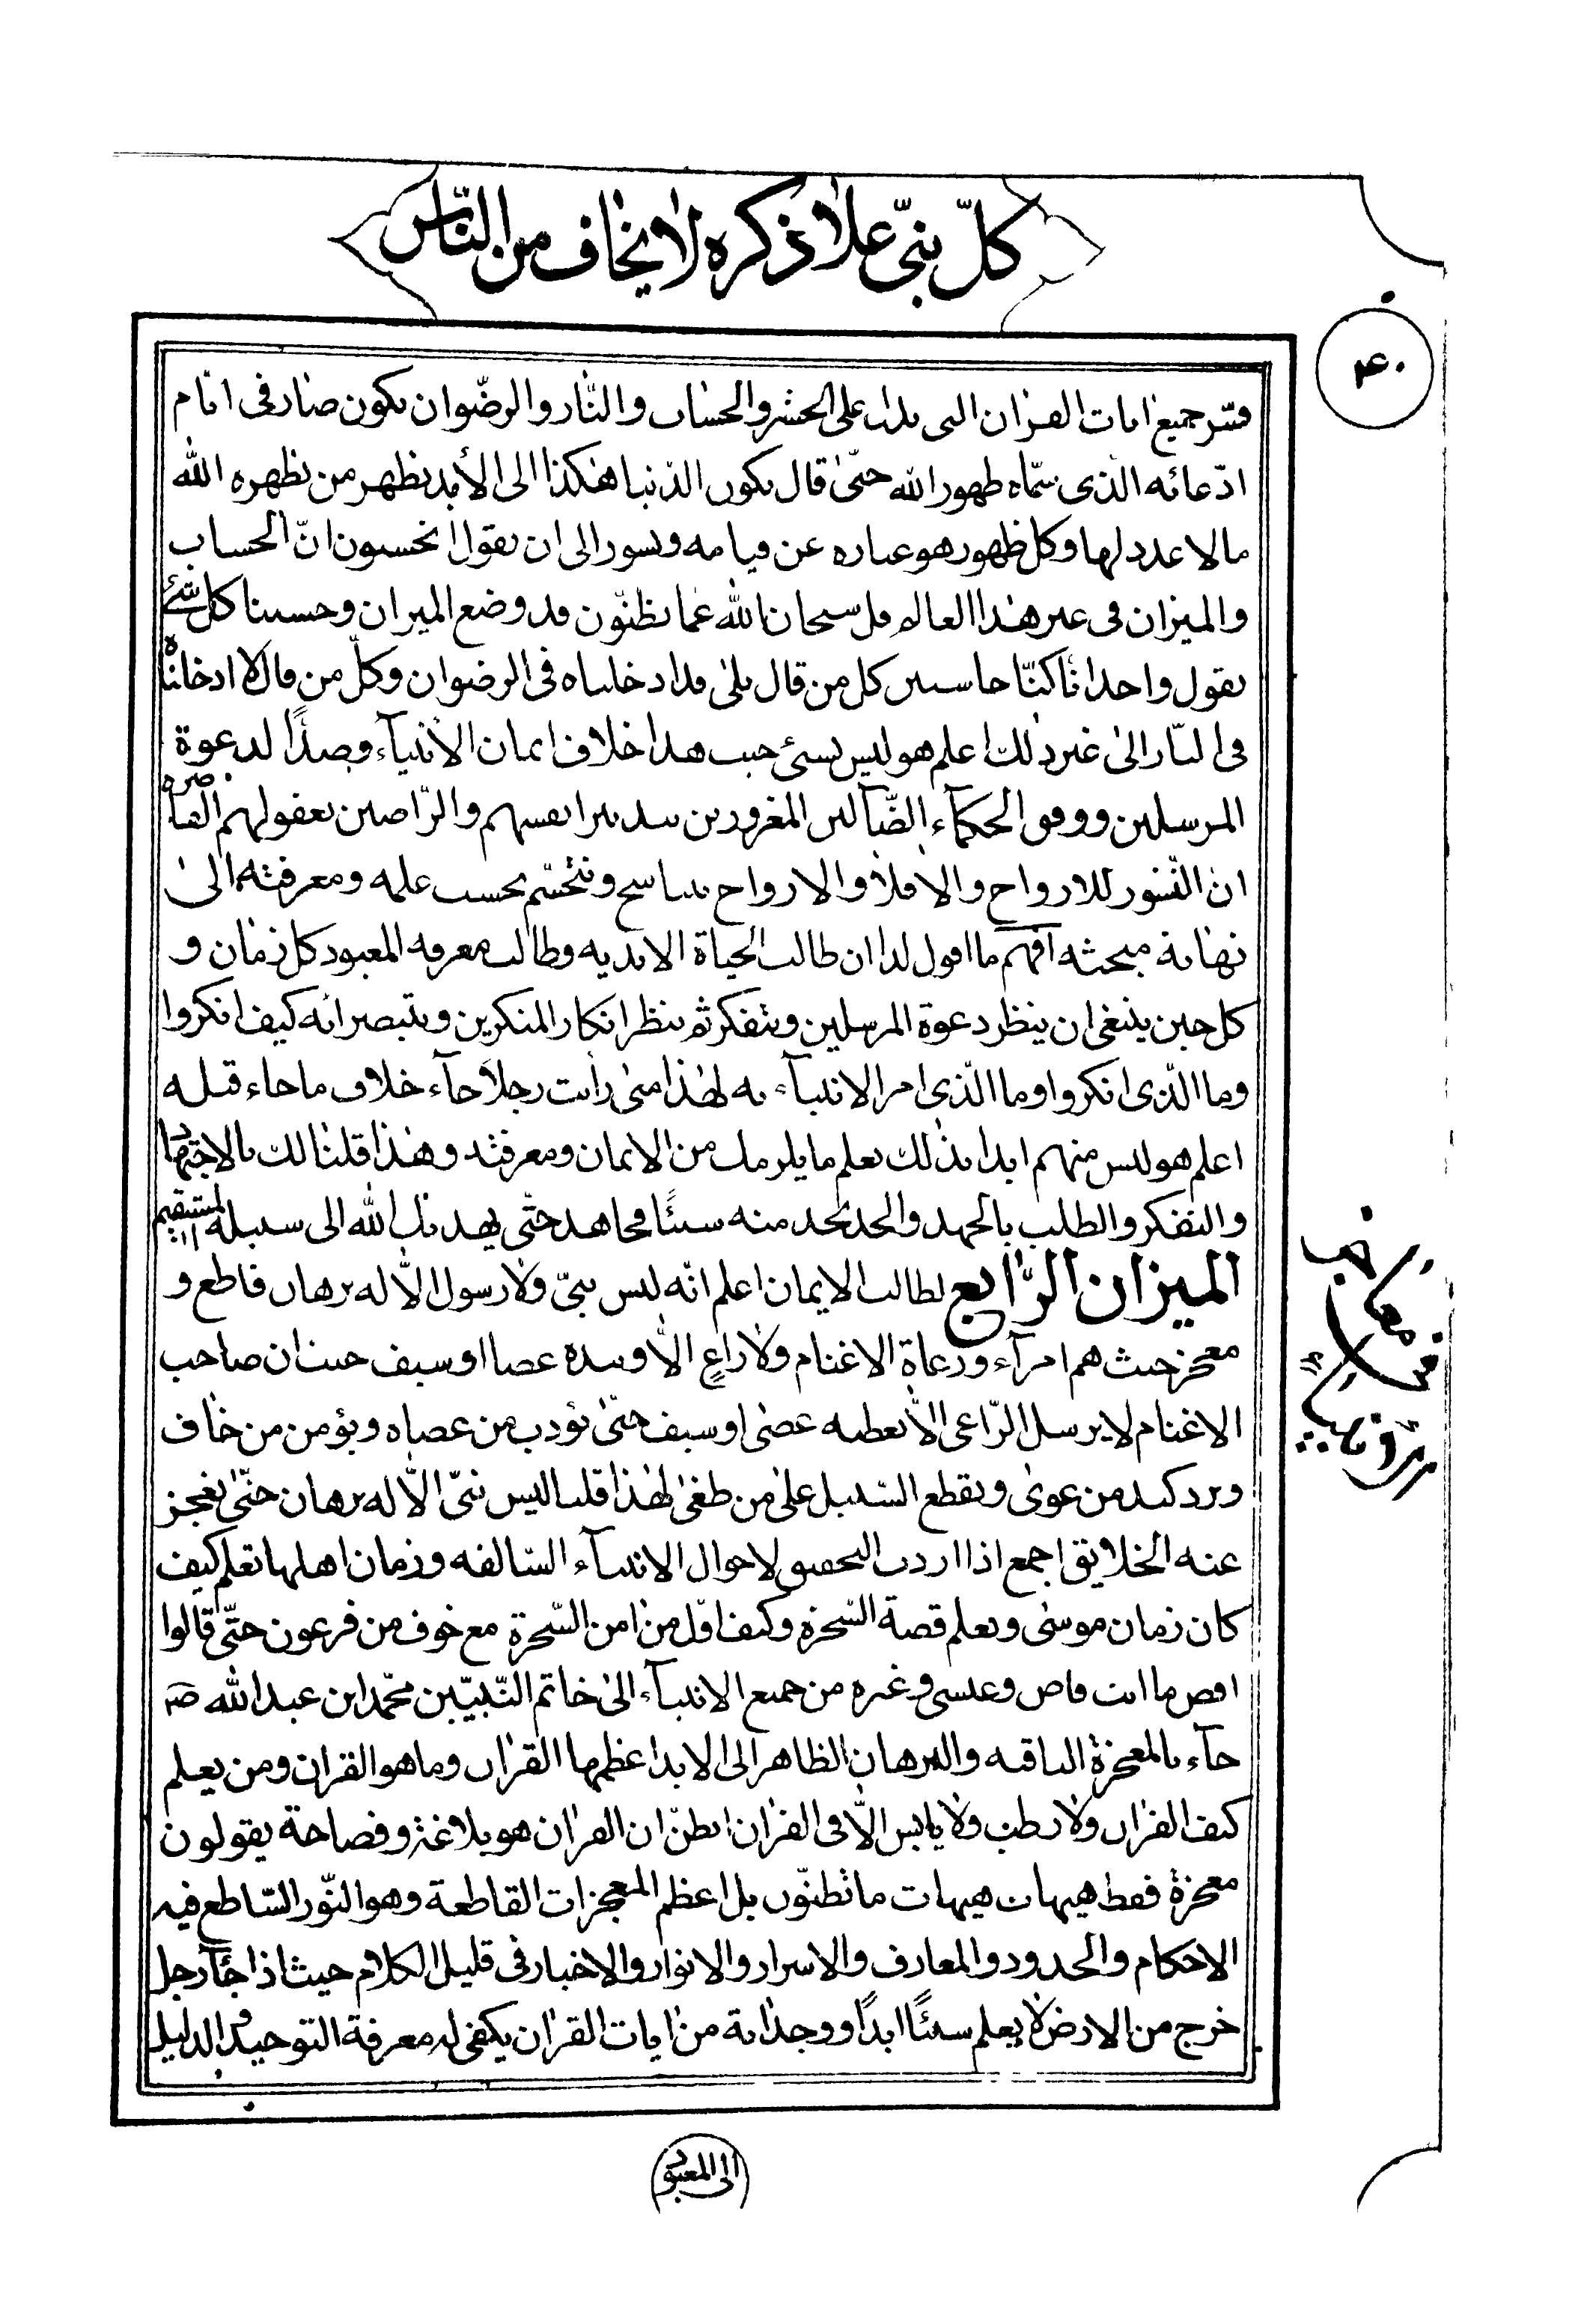 كلّ نبىّ علا ذكره لا يخاف من النّاس
۴۰
فسّر جميع ايات القران التى يدل على الحشر والحساب والنّار والرضّوان يكون صار فى ايّام
ادّعائه الذى سمّاه ظهور الله حتّى قال يكون الدّنيا هكذا الى الأبد يظهر من يظهره الله
مالا عدد لها وكل ظهور هو عباره عن قيامه ونسور الى ان يقول اتحسبون انّ الحساب
والميزان فى غير هذا العالم قل سبحان الله عمّا يظنّون قد وضع الميزان وحسبنا كل شئ
يقول واحدا انّا كنّا حاسبين كل من قال بلى قد ادخلناه فى الرضوان وكلّ من قال لا ادخلناه
فى النّار الى غير ذلك اعلم هو ليس بشئ حيث هذا خلاف ايمان الأنبيآء وضدّا لدعوة
المرسلين ووفق الحكمآء الضّآلين المغرورين بتدبير انفسهم والرّاضين بعقولهم القاصره
ان النّشور للارواح والا فلا والارواح يتناسخ ويتجسّم بحسب علمه ومعرفته الى
نهاية مبحثه افهم ما اقول لذا ان طالب الحياة الابديه وطالب معرفه المعبود كل زمان و
كل حين ينبغى ان ينظر دعوة المرسلين ويتفكر ثم ينظر انكار المنكرين ويتبصر انه كيف انكروا
وما الذّى انكروا وما الذّى امر الانبيآء به لهذا متى رأيت رجلا جآء خلاف ما جاء قبله
اعلم هو ليس منهم ابدا بذلك تعلم ما يلزمك من الايمان ومعرفته وهذا قلنا لك بالاجتهاد
والتفكر والطلب بالجهد والجد تجد منه سبيلا مجاهد حتّى يهديك الله الى سبيله المستقيم
الميزان الرّابع لطالب الايمان اعلم انّه ليس نبىّ ولا رسول الّا له برهان قاطع و
معجز حيث هم امرآء ورعاة الاغنام ولا راعٍ الّا وبيده عصا او سيف حيث ان صاحب
الاغنام لا يرسل الرّاعى الّا يعطيه عصى او سيف حتّى يؤدب من عصاه ويؤمن من خاف
ويرد كيد من عوى ويقطع السّبيل على من طغى لهذا قلنا ليس نبىّ الّا له برهان حتّى يعجز
عنه الخلايق اجمع اذا اردت التحقيق لاحوال الانبيآء السّالفه وزمان اهلها تعلم كيف
كان زمان موسى وتعلم قصة السّحرة وكيف اوّل من امن السّحرة مع خوف من فرعون حتّى قالوا
اقض ما انت قاض وعيسى وغيره من جميع الانبيآء الى خاتم النّبييّن محمّد ابن عبد الله ص
جآء بالمعجزة الباقيه والبرهان الظاهر الى الابد اعظمها القران وما هو القران ومن يعلم
كيف القران ولا رطب ولا يابس الّا فى القران اتظنّ ان القران هو بلاغة وفصاحة يقولون
معجزة فقط هيهات هيهات ما تظنّون بل اعظم المعجزات القاطعة وهو النّور السّاطع فيه
الاحكام والحدود والمعارف والاسرار والانوار والاخبار فى قليل الكلام حيث اذا جآء رجل
خرج من الارض لا يعلم شيئًا ابدًا ووجد اية من ايات القران يكفى له معرفة التوحيد والدليل
الى المعبود